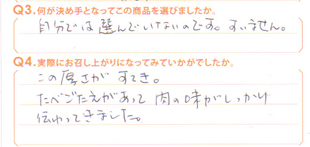 Q3.何が決め手となってこの商品を選びましたか。
自分では選んでいないのです。すいません。
Q4.実際にお召し上がりになってみていかがでしたか。
この厚さがすてき。
たべごたえがあって肉の味がしっかり
伝わってきました。